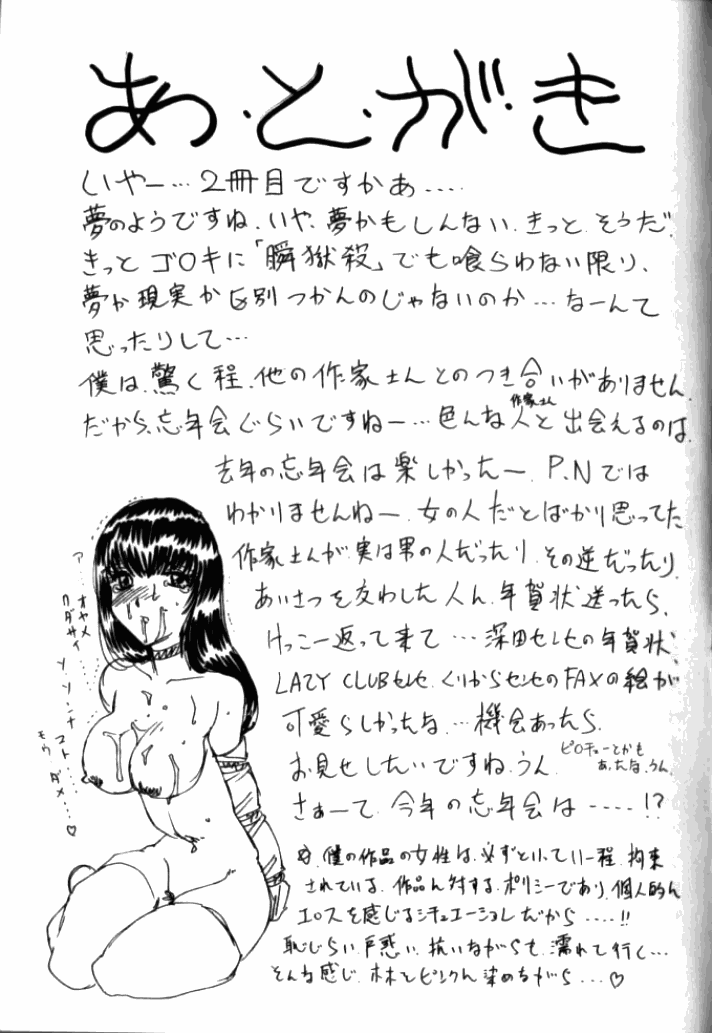 あ・と・がき
いやー…2冊目ですかあ....
夢のようですね、いや、夢かもしんない、きっと、そうだ、
きっと ゴロキに「瞬獄殺」でも喰らわない限り、
夢か現実か区別つかんのじゃないのか…なーんて
思ったりして…
僕は、驚く程、他の作家さんとのつき合いがありません、
だから、忘年会ぐらいですねー…色んな人と出会えるのは、
作家さん
去年の忘年会は楽しかったー、P.Nでは
わかりませんねー、女の人だとばかり思ってた
作家さんが、実は男の人だったり、その逆だったり、
あいさつを交わした人に、年賀状送ったら、
けっこー返って来て…深田センセの年賀状、
LAZY CLUBセンセ、くりからセンセのFAXの絵が
可愛らしかったな…機会あったら、
お見せしたいですね、うん、
ピロチューとかも
あったな、うん、
さぁーて、今年の忘年会は----!?
僕の作品の女性は、必ずといってい一程、拘束
されている、作品に対する、ポリシーであり、個人的に
エロスを感じるシチュエーションだから....!!
恥じらい、戸惑い、抗いながらも、濡れて行く…
そんな感じ、ホホをピンクに染めながら…♡
ア…オヤメ
クダサイ
ソ…ソンナ
コト……
モウ…ダメ…♡